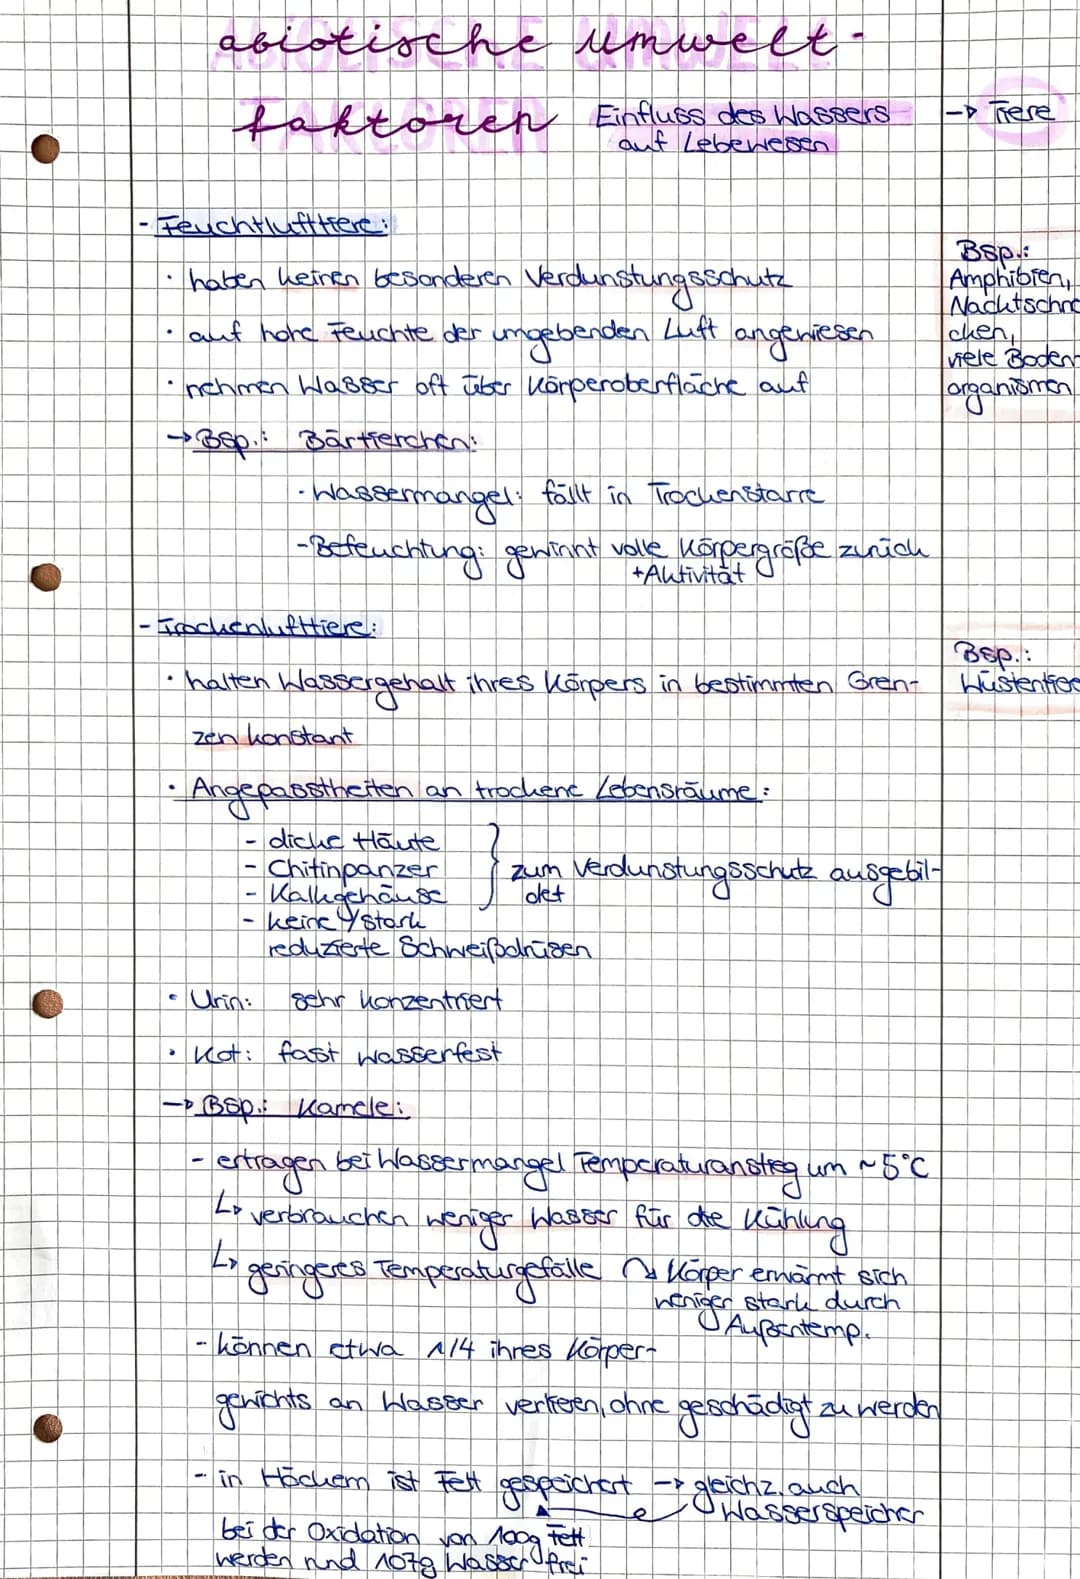 abiotische Umwelt-
faktoren Einfluss des Wassers → Tiere
auf Lebewesen
- Feuchtlufttiere:
• haben keinen besonderen Verdunstungsschutz
• auf hohe Feuchte der umgebenden Luft angewiesen
• nehmen Wasser oft über Körperoberfläche auf
Bsp.:
Amphibien,
Nacktschne
cken,
viele Boden-
organismen
→ Bsp.: Bärtierchen:
- Wassermangel: fällt in Trockenstarre
- Befeuchtung: gewinnt volle Körpergröße zurück
+Aktivität
- Trockenlufttiere:
• halten Wassergehalt ihres Körpers in bestimmten Gren-
zen konstant
Bsp.:
Wüstentie
• Angepasstheiten an trockene Lebensräume:
- dicke Häute
- Chitinpanzer
- Kalkgehäuse
} zum Verdunstungsschutz ausgebil-
det
- keine/stark
reduzierte Schweißdrüsen
• Urin: sehr konzentriert
• Kot: fast wasserfest
→ Bsp.: Kamele:
- ertragen bei Wassermangel Temperaturanstieg um ~5°C
↳ verbrauchen weniger Wasser für die Kühlung
↳ geringeres Temperaturgefälle ↷ Körper erwärmt sich
weniger stark durch
Außentemp.
- können etwa 1/4 ihres Körper-
gewichts an Wasser verlieren, ohne geschädigt zu werden
- in Höckern ist Fett gespeichert → gleichz. auch
Wasserspeicher
bei der Oxidation von 100g Fett
werden rund 107g Wasser frei